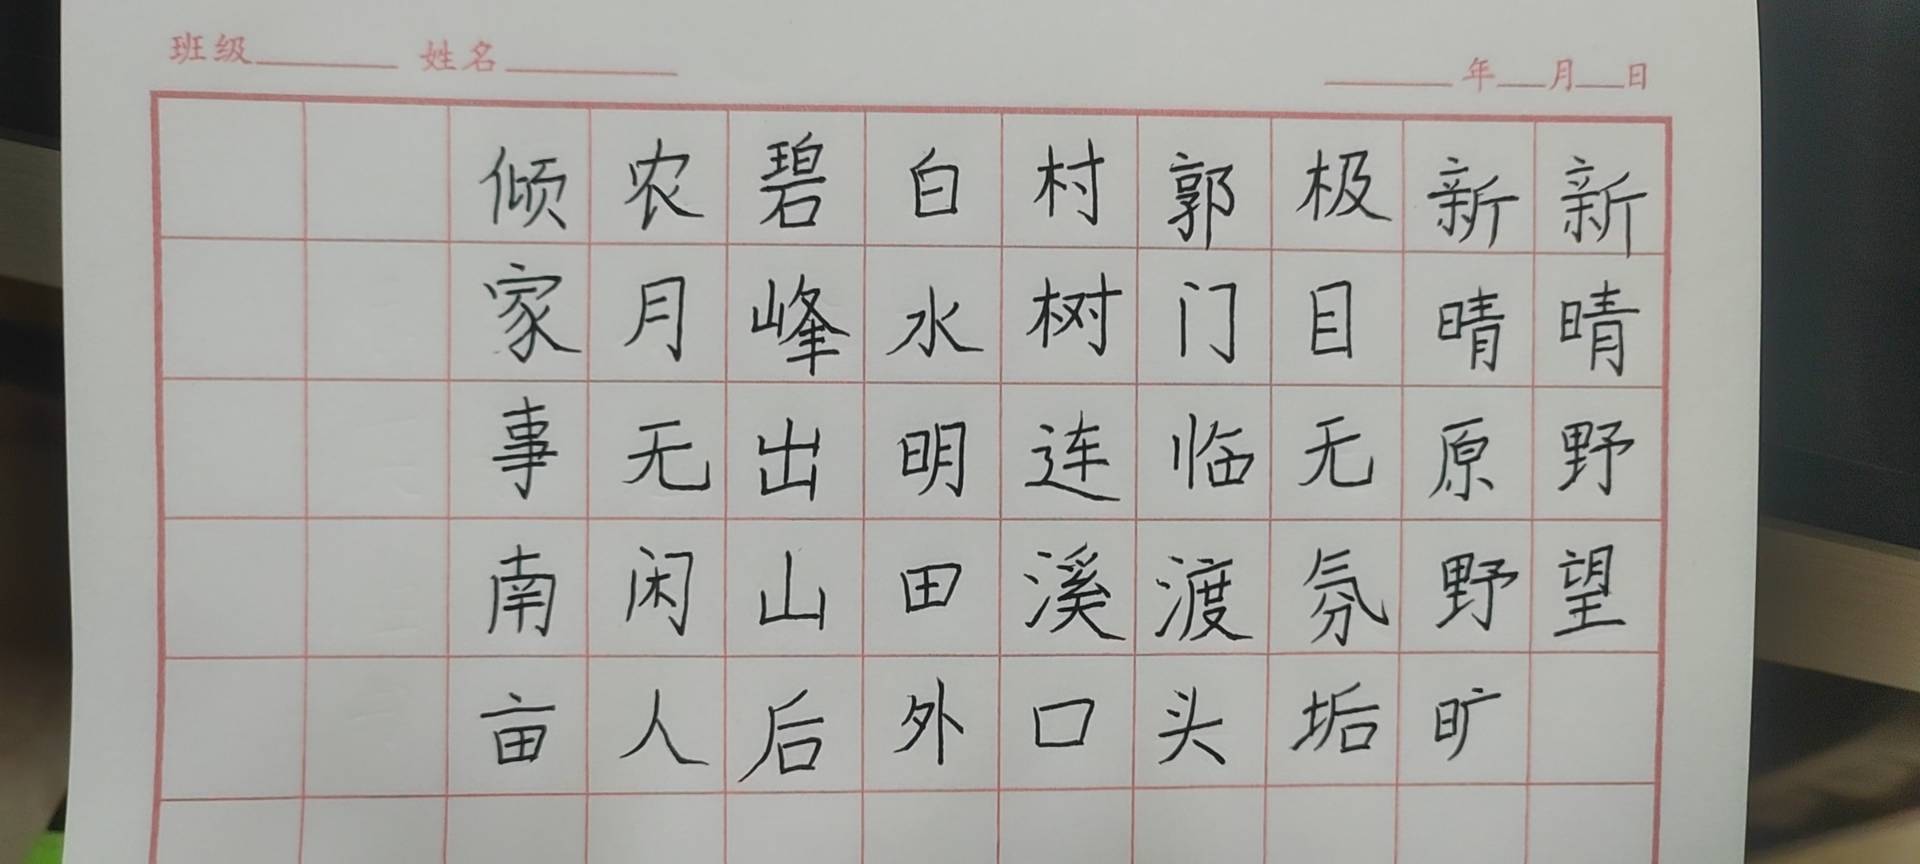 班级 姓名 年 月 日
新晴野望
新晴原野旷
极目无氛垢
郭门临渡头
村树连溪口
白水明田外
碧峰出山后
农月无闲人
倾家事南亩